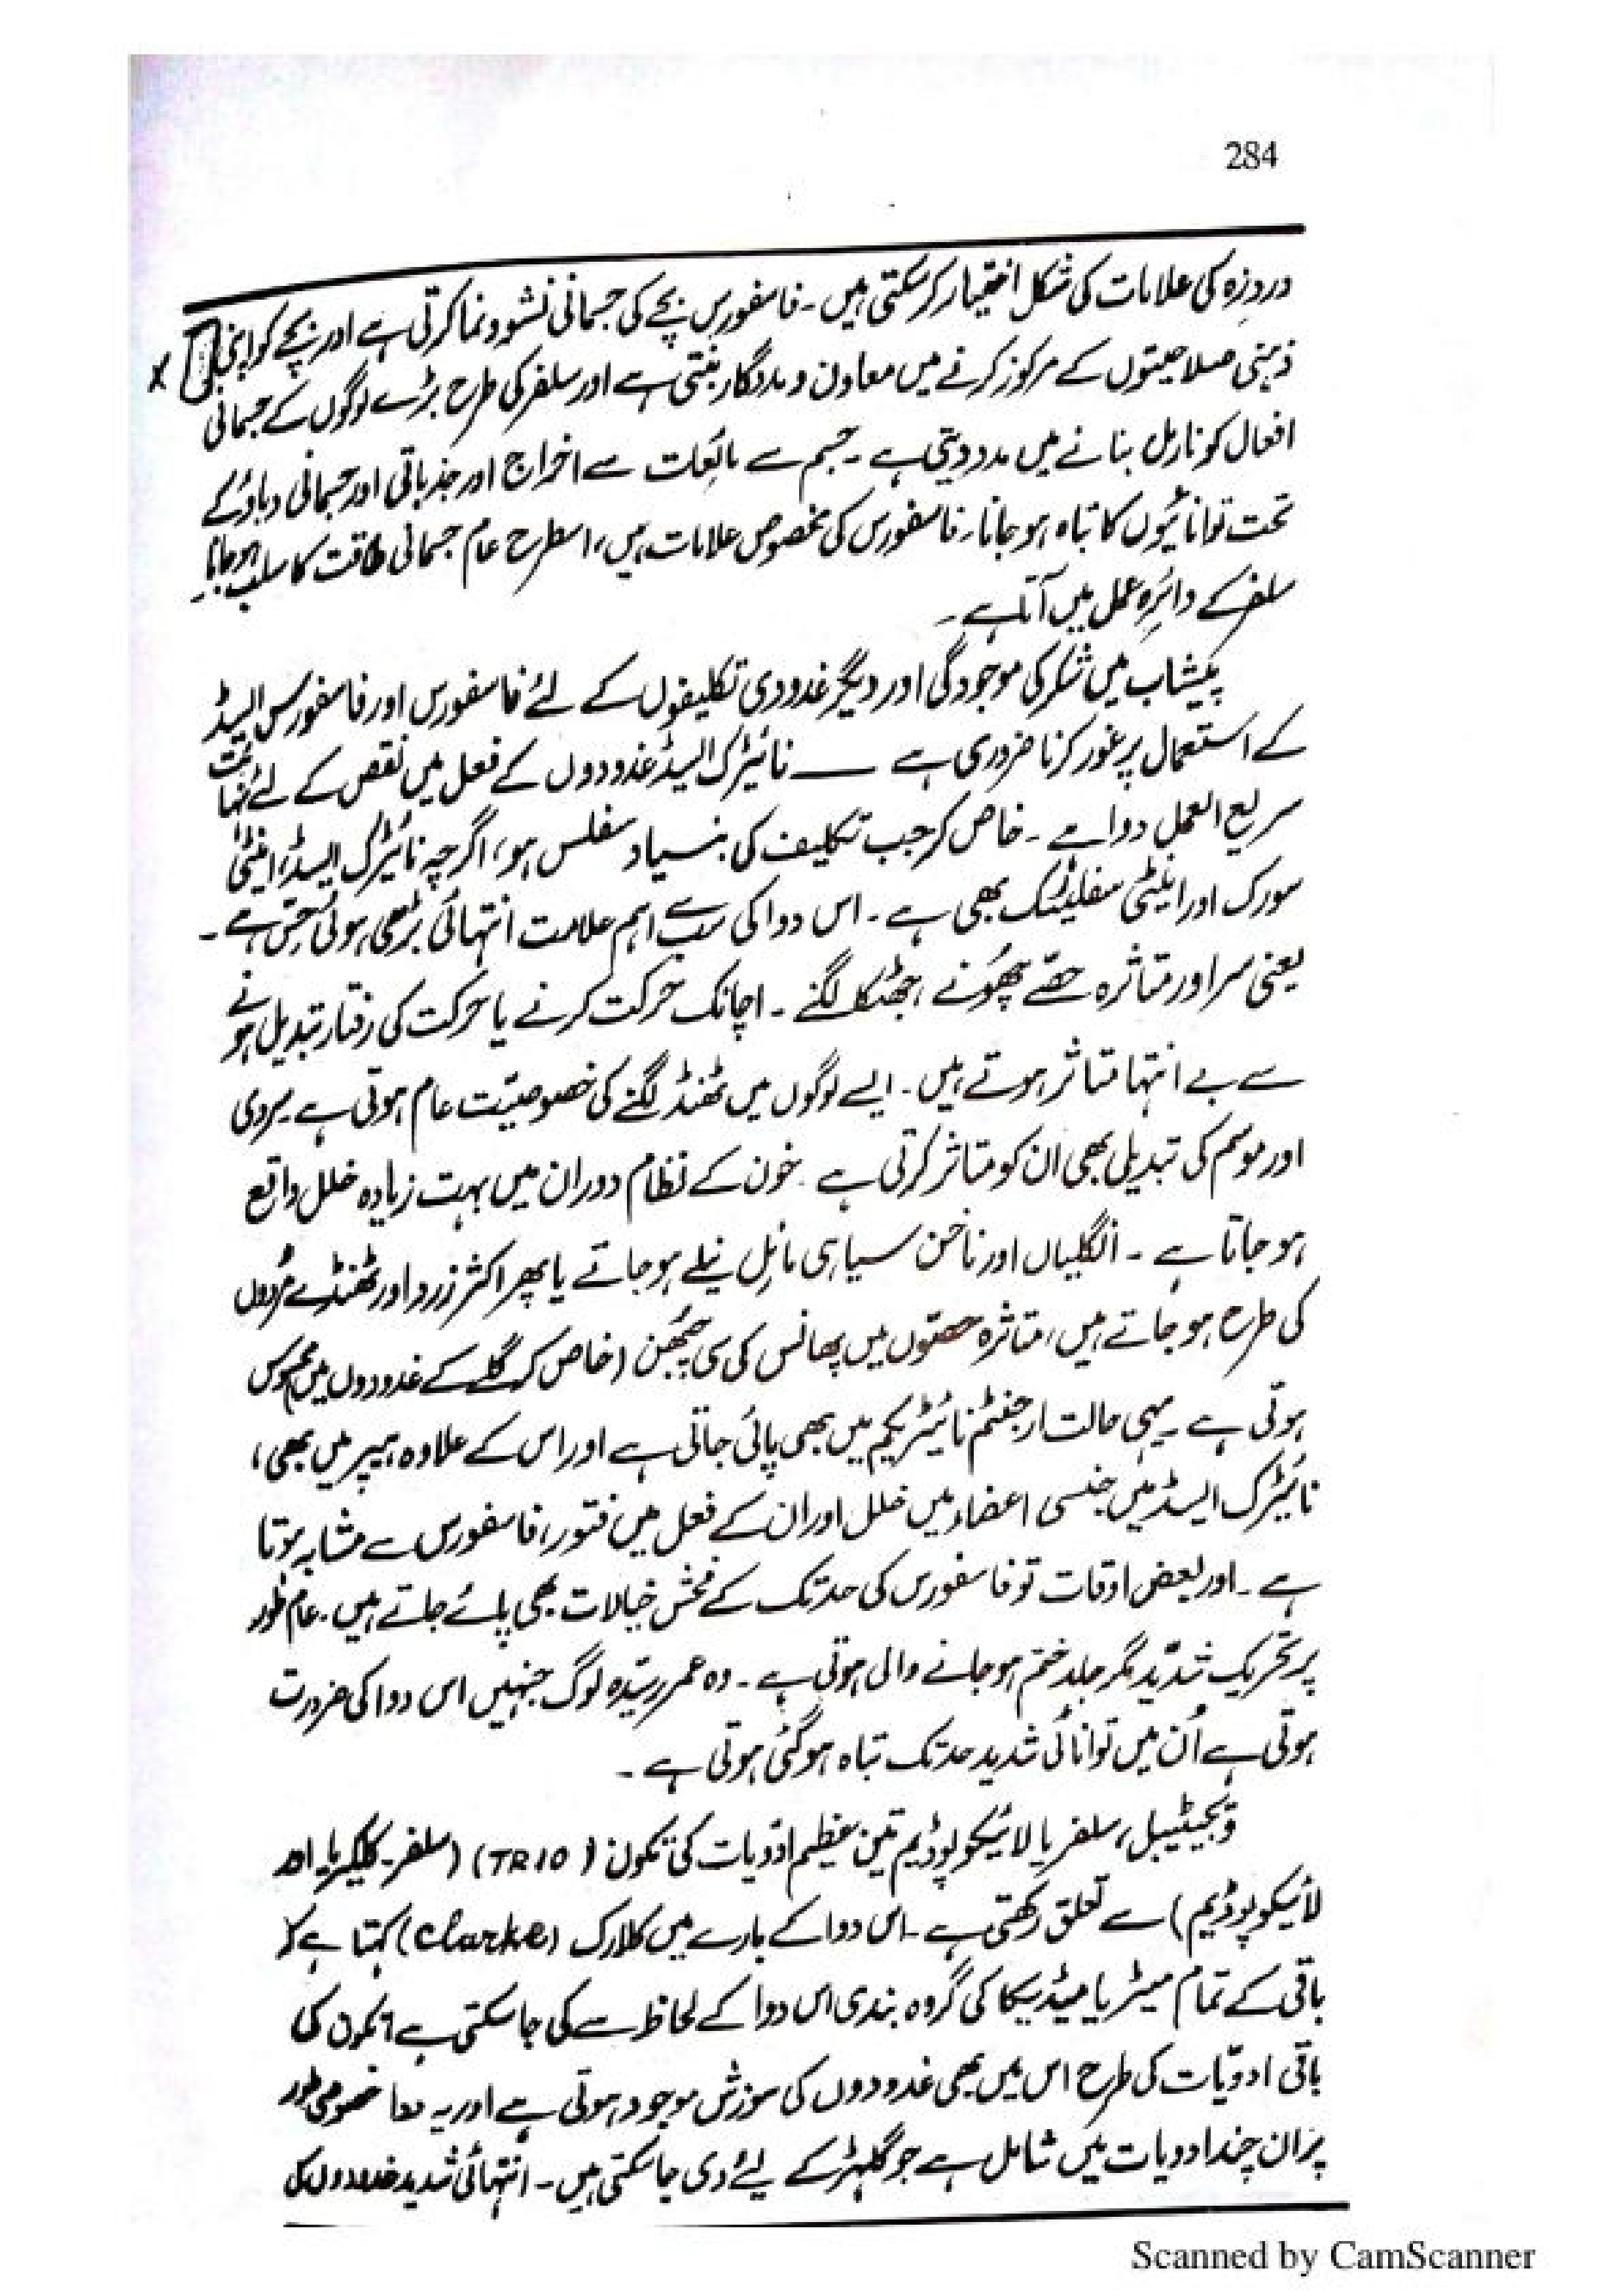 284
دردِزہ کی علامات کی شکل اختیار کر سکتی ہیں۔ فاسفورس بچے کی جسمانی نشوونما کرتی ہے اور بچے کو اپنی
ذہنی صلاحیتوں کے مرکوز کرنے میں معاون و مددگار بنتی ہے اور سلفر کی طرح بڑے لوگوں کے جسمانی
افعال کو نارمل بنانے میں مدد دیتی ہے۔ جسم سے مائعات سے اخراج اور جذباتی اور جسمانی دباؤ کے
تحت توانائیوں کا تباہ ہو جانا۔ فاسفورس کی مخصوص علامات ہیں، اسطرح عام جسمانی طاقت کا سلب ہو جانا۔
سلفر کے دائرہ عمل میں آتا ہے۔
پیشاب میں شکر کی موجودگی اور دیگر غدودی تکلیفوں کے لئے فاسفورس اور فاسفورس ایسڈ
کے استعمال پر غور کرنا ضروری ہے —— نائیٹرک ایسڈ غدودوں کے فعل میں نقص کے لئے نہائت
سریع العمل دوا ہے۔ خاص کر جب تکلیف کی بنیاد سفلس ہو، اگرچہ نائیٹرک ایسڈ، اینٹی
سورک اور اینٹی سفلیٹک بھی ہے۔ اس دوا کی سب سے اہم علامت انتہائی بڑھی ہوئی حِس ہے۔
یعنی سر اور متاثرہ حصے چھُونے، جھٹکا لگنے۔ اچانک حرکت کرنے یا حرکت کی رفتار تبدیل ہونے
سے بے انتہا متاثر ہوتے ہیں۔ ایسے لوگوں میں ٹھنڈ لگنے کی خصوصیّت عام ہوتی ہے۔ سردی
اور موسم کی تبدیلی بھی ان کو متاثر کرتی ہے۔ خون کے نظام دوران میں بہت زیادہ خلل واقع
ہو جاتا ہے۔ انگلیاں اور ناخن سیاہی مائل نیلے ہو جاتے یا پھر اکثر زرد اور ٹھنڈے مُردوں
کی طرح ہو جاتے ہیں، متاثرہ حصّوں میں پھانس کی سی چُبھن (خاص کر گلے کے غدودوں میں) محسوس
ہوتی ہے۔ یہی حالت ارجنٹم نائیٹریکم میں بھی پائی جاتی ہے اور اس کے علاوہ ہیپر میں بھی،
نائیٹرک ایسڈ میں جنسی اعضاء میں خلل اور ان کے فعل میں فتور، فاسفورس سے مشابہ ہوتا
ہے۔ اور بعض اوقات تو فاسفورس کی حد تک کے فحش خیالات بھی پائے جاتے ہیں۔ عام طور
پر تحریک شدید مگر جلد ختم ہو جانے والی ہوتی ہے۔ وہ عمر رسیدہ لوگ جنہیں اس دوا کی ضرورت
ہوتی ہے اُن میں توانائی شدید حد تک تباہ ہو گئی ہوتی ہے۔
وَجیٹیبل، سلفر یا لائیکوپوڈیم تین عظیم ادویات کی تکون (TRIO) (سلفر۔ کلکیریا۔ اور
لائیکوپوڈیم) سے تعلق رکھتی ہے۔ اس دوا کے بارے میں کلارک (Clarke) کہتا ہے کہ
باقی کے تمام میٹریا میڈیکا کی گروہ بندی اس دوا کے لحاظ سے کی جا سکتی ہے تکون کی
باقی ادویّات کی طرح اس میں بھی غدودوں کی سوزش موجود ہوتی ہے اور یہ دوا خصوصی طور
پر ان چند ادویات میں شامل ہے جو گلہڑ کے لئے دی جا سکتی ہیں۔ انتہائی شدید غدودوں کی
Scanned by CamScanner